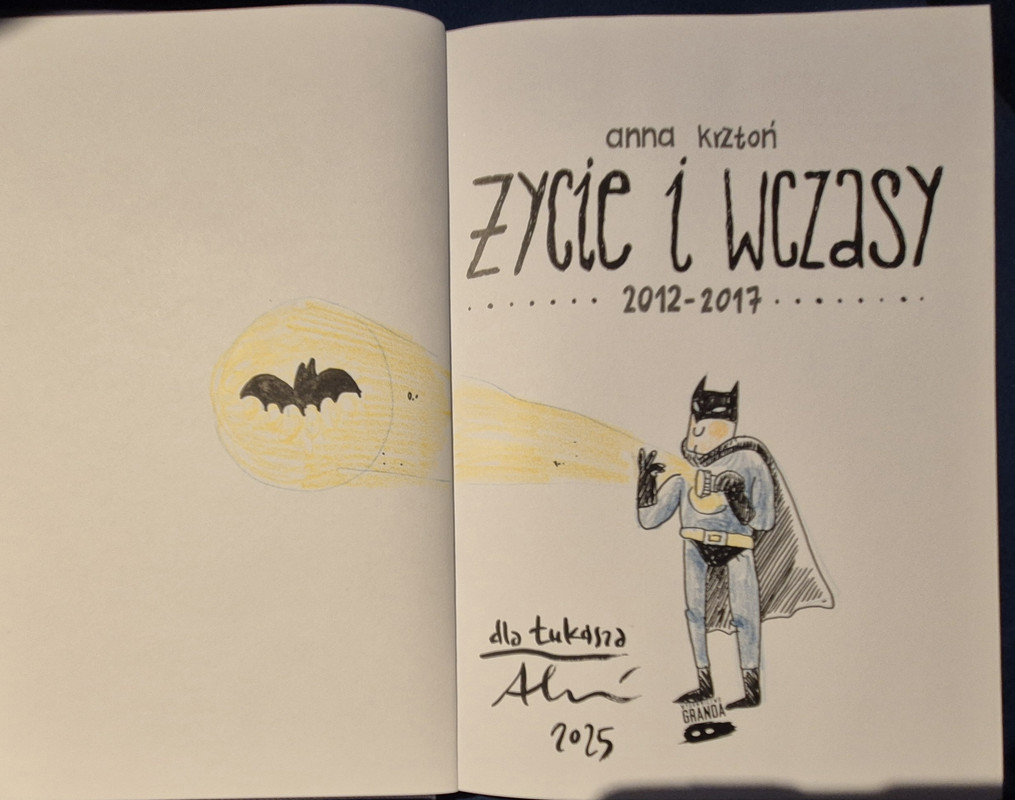 anna krztoń
życie i wczasy
2012-2017
dla Łukasza
2025
GRANDA